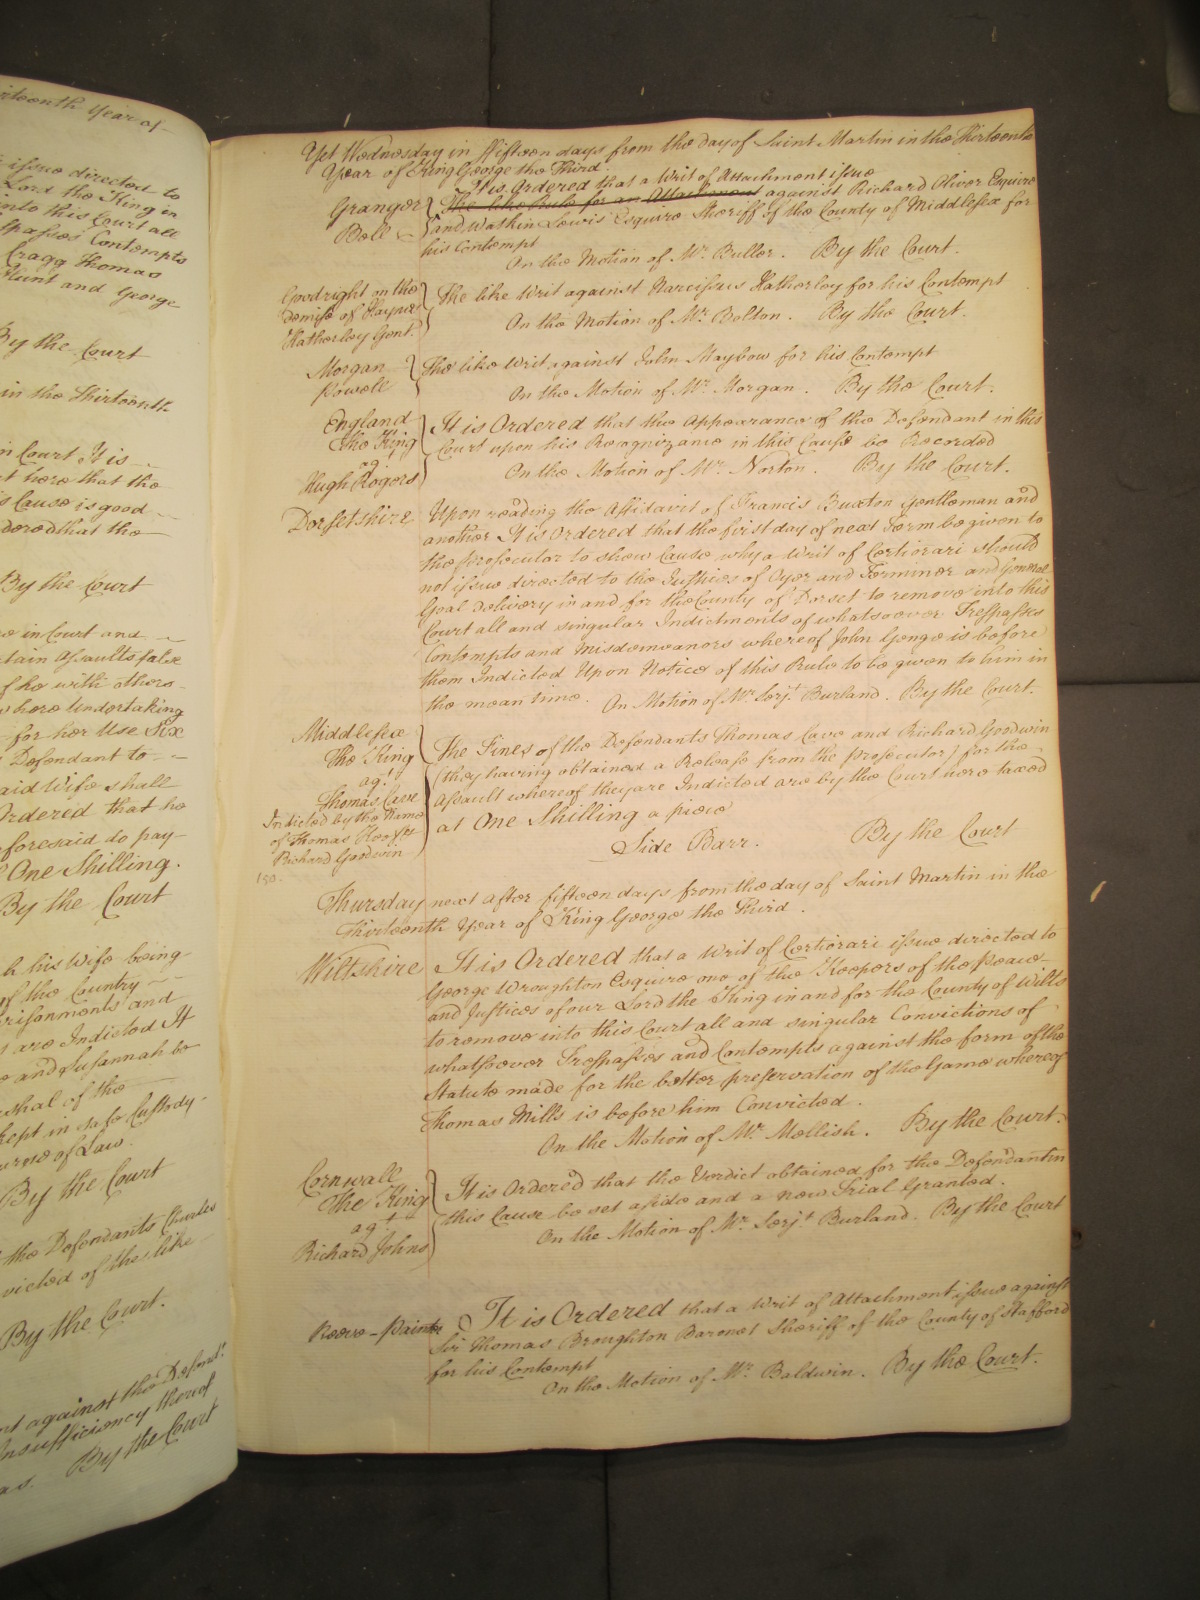 rteenth Year of
issue directed to
Lord the King in
into this Court all
spasses Contempts
Cragg Thomas
Hunt and George
By the Court
in the Thirteenth
in Court It is
t here that the
s Cause is good
dered that the
By the Court
e in Court and
tain Assaults false
f he with others
where Undertaking
for her Use Six
Defendant to
aid Wife shall
Ordered that he
foresaid do pay
One Shilling.
By the Court
h his Wife being
of the Country
risonments and
are Indicted It
and Susannah be
shal of the
kept in safe Custody
urse of Law.
By the Court
the Defendants Charles
victed of the like
By the Court.
nt against the Defend.t
Insufficiency thereof
By the Court
Yet Wednesday in ffifteen days from the day of Saint Martin in the Thirteenth
Year of King George the Third.
It is Ordered that a Writ of Attachment issue
Granger The like Rule for an Attachment against Richard Oliver Esquire
Bell and Watkin Lewis Esquire Sheriff of the County of Middlesex for
his Contempt
On the Motion of Mr. Buller. By the Court.
Goodright on the The like Writ against Narcissus Hatherley for his Contempt
Demise of Hayne
Hatherley Gent. On the Motion of Mr. Bolton. By the Court.
Morgan The like Writ against John Maybow for his Contempt
Powell On the Motion of Mr. Morgan. By the Court.
England It is Ordered that the Appearance of the Defendant in this
The King Court upon his Recognizance in this Cause be Recorded
ag.
Hugh Rogers On the Motion of Mr. Norton. By the Court.
Dorsetshire Upon reading the Affidavit of Francis Buxton Gentleman and
another It is Ordered that the first day of next Term be given to
the prosecutor to shew Cause why a Writ of Certiorari should
not issue directed to the Justices of Oyer and Terminer and General
Goal Delivery in and for the County of Dorset to remove into this
Court all and singular Indictments of whatsoever Trespasses
Contempts and Misdemeanors whereof John Genge is before
them Indicted Upon Notice of this Rule to be given to him in
the mean time. On Motion of Mr. Serj.t Burland. By the Court.
Middlesex
The King The Fines of the Defendants Thomas Cave and Richard Goodwin
ag.t (they having obtained a Release from the prosecutor) for the
Thomas Cave Assault whereof they are Indicted are by the Court here taxed
Indicted by the Name at One Shilling a piece
of Thomas
Richard Goodwin Side Barr. By the Court
150.
Thursday next after fifteen days from the day of Saint Martin in the
Thirteenth Year of King George the Third.
Wiltshire It is Ordered that a Writ of Certiorari issue directed to
George Wroughton Esquire one of the Keepers of the peace
and Justices of our Lord the King in and for the County of Wilts
to remove into this Court all and singular Convictions of
whatsoever Trespasses and Contempts against the form of the
Statute made for the better preservation of the Game whereof
Thomas Mills is before him Convicted.
On the Motion of Mr. Mellish. By the Court.
Cornwall
The King It is Ordered that the Verdict obtained for the Defendant in
ag.t this Cause be set aside and a new Trial Granted.
Richard Johns On the Motion of Mr. Serj.t Burland. By the Court
Reeve - Painter It is Ordered that a Writ of Attachment issue against
Sir Thomas Broughton Baronet Sheriff of the County of Stafford
for his Contempt
On the Motion of Mr. Baldwin. By the Court.